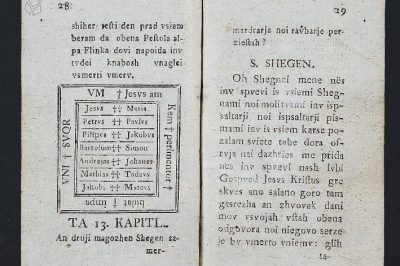 28
shiher resti den prad vsiem
beram da obena Pestola al-
pa Flinka dovi napoida inv
tvdei knabosh vnaglei
vsmerti vmerv.
VM †† Jesvs am
Jesvs †† Maria.
Petrvs †† Pavlvs
Pilipvs †† Jakobvs
Bartolom †† Simon
Andrejas †† Johanes
Mathias †† Tadevs
Jakobi †† Matevs
VNI †† SVQR
TA 13. KAPITL.
An druji magozhen Shegen sa-
mer-
29
merdvarja noi ravbarje per-
ziestah?
S. SHEGEN.
Oh Shegnei mene nes
inv spvevi is vsiemi Sheg-
nami noi molitvami inv isp-
saltarji noi ispsaltarji pis-
mami inv is vsiem karse po-
zalam sviete tabe dora of-
rvja nai dazhries me prida
nes inv spvevi nash lvbi
Gospved Jesvs Kristus gre
skves ano salano goro tam
gasrezha an zhvovak dani
mov rsvojah vstah obena
odghvora noi niegovo serze
je bv vmerto vniemv: glih
ta-